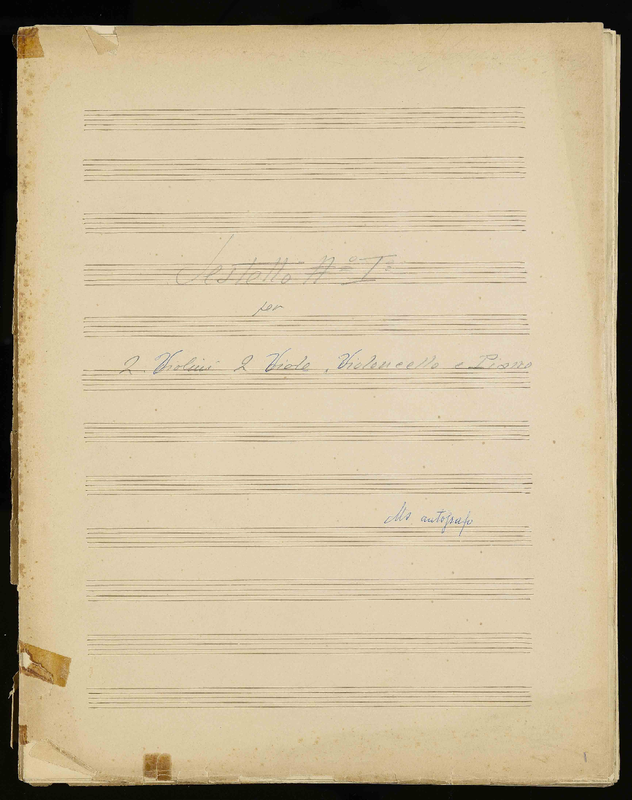 Sestetto Nº Iº
per
2 Violini 2 Viole, Violoncello e Piano
Ms autografo
1